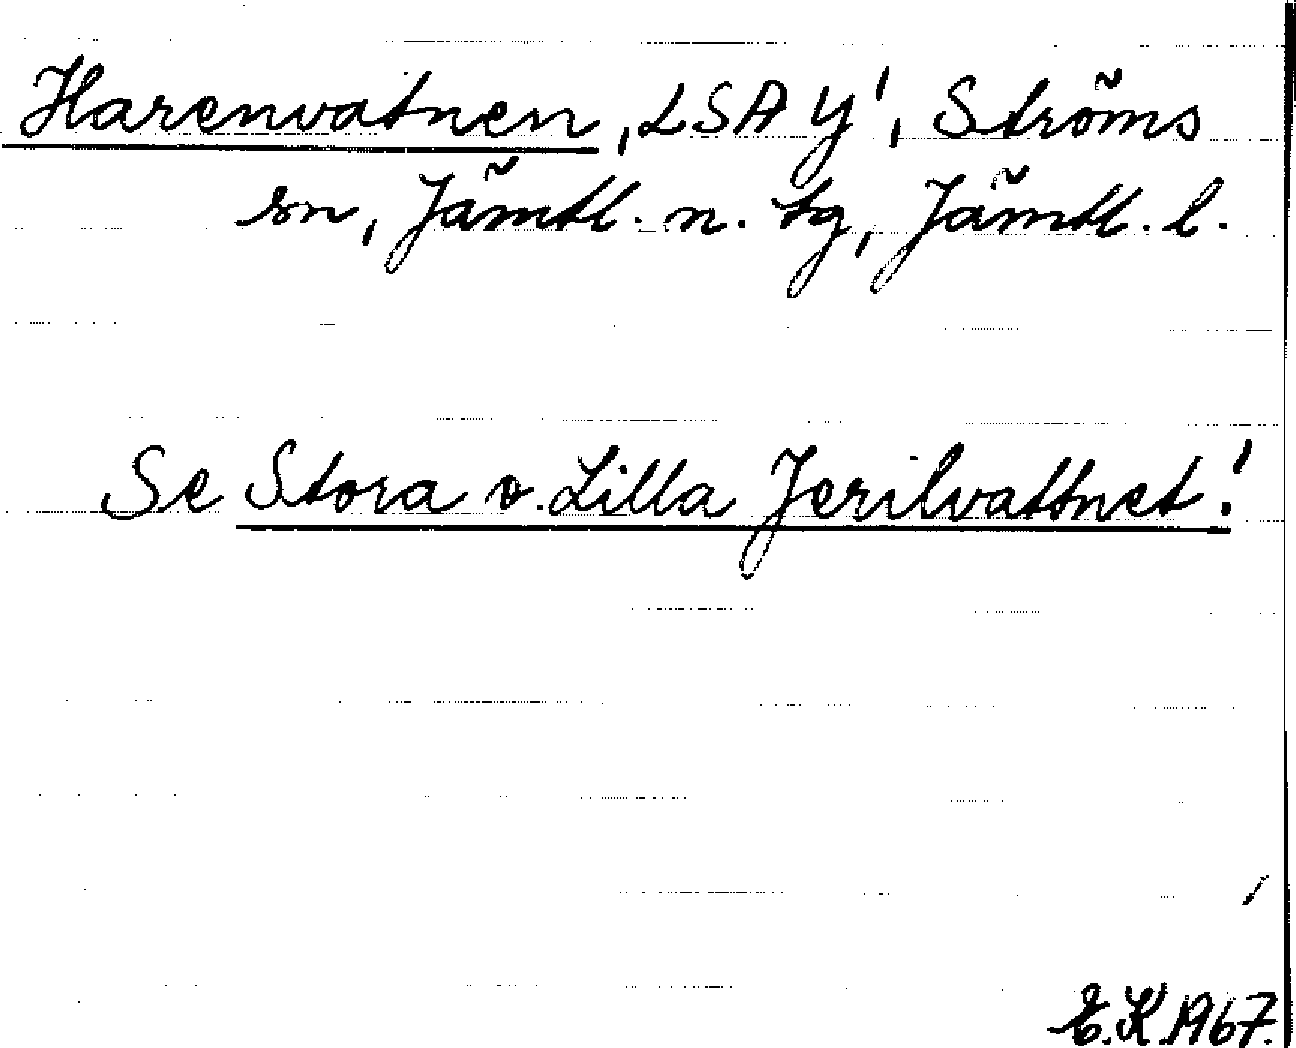 Harenvatnen, LSA Y', Ströms
sn, Jämtl. n. tg, Jämtl. l.
Se Stora o. Lilla Jerilvattnet!
E.K. 1967.